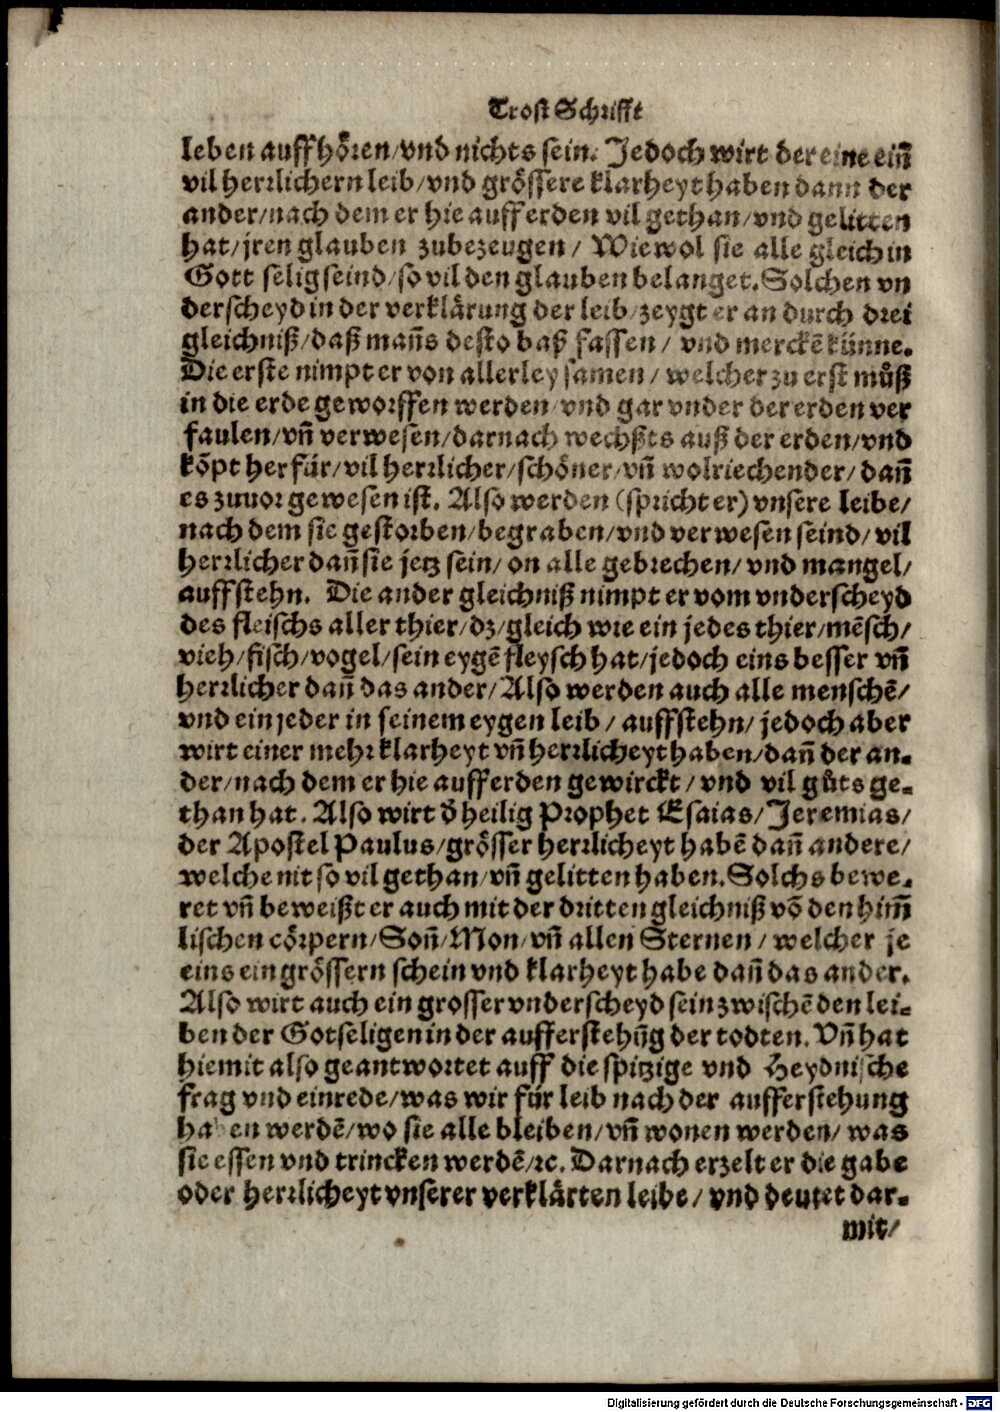 Trost Schrifft
leben auffhören/vnd nichts sein. Jedoch wirt der eine ein̄
vil herrlichern leib/vnd grössere klarheyt haben dann der
ander/nach dem er hie auff erden vil gethan/vnd gelitten
hat/jren glauben zubezeugen/ Wiewol sie alle gleich in
Gott selig seind/so vil den glauben belanget. Solchen vn
derscheyd in der verklärung der leib/zeygt er an durch drei
gleichniß/daß man̄s desto baß fassen/ vnd merckē künne.
Die erste nimpt er von allerley samen/ welcher zu erst můß
in die erde geworffen werden/vnd gar vnder der erden ver
faulen/vn̄ verwesen/darnach wechßts auß der erden/vnd
kōpt herfür/vil herrlicher/schöner/vn̄ wolriechender/dan̄
es zuuor gewesen ist. Also werden (spricht er) vnsere leibe/
nach dem sie gestorben/begraben/vnd verwesen seind/vil
herrlicher dan̄ sie jetz sein/on alle gebrechen/vnd mangel/
auffstehn. Die ander gleichniß nimpt er vom vnderscheyd
des fleischs aller thier/dz/gleich wie ein jedes thier/mēsch/
vieh/fisch/vogel/sein eygē fleysch hat/jedoch eins besser vn̄
herrlicher dan̄ das ander/Also werden auch alle menschē/
vnd ein jeder in seinem eygen leib/ auffstehn/jedoch aber
wirt einer mehr klarheyt vn̄ herrlicheyt haben/dan̄ der an-
der/nach dem er hie auff erden gewirckt/ vnd vil gůts ge-
than hat. Also wirt d̄ heilig Prophet Esaias/Jeremias/
der Apostel Paulus/grösser herrlicheyt habē dan̄ andere/
welche nit so vil gethan/vn̄ gelitten haben. Solchs bewe-
ret vn̄ beweißt er auch mit der dritten gleichniß vō den him̄
lischen cörpern/Son̄/Mon/vn̄ allen Sternen/ welcher je
eins ein grössern schein vnd klarheyt habe dan̄ das ander.
Also wirt auch ein grosser vnderscheyd sein zwischē den lei-
ben der Gotseligen in der aufferstehūg der todten. Vn̄ hat
hiemit also geantwortet auff die spitzige vnd Heydnische
frag vnd einrede/was wir für leib nach der aufferstehung
haben werdē/wo sie alle bleiben/vn̄ wonen werden/was
sie essen vnd trincken werdē/rc. Darnach erzelt er die gabe
oder herrlicheyt vnserer verklärten leibe/ vnd deutet dar-
mit/
Digitalisierung gefördert durch die Deutsche Forschungsgemeinschaft - DFG